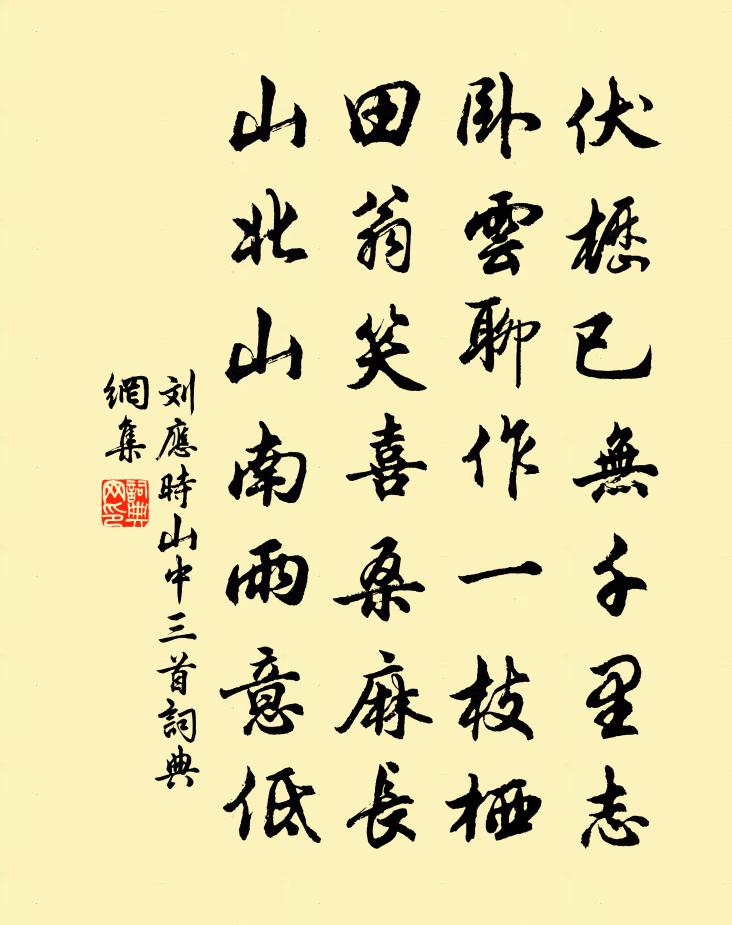 伏櫪已無千里志
臥雲聊作一枝栖
田翁笑喜桑麻長
山北山南雨意低
刘應時山中三首詞典
網集
詞典網印